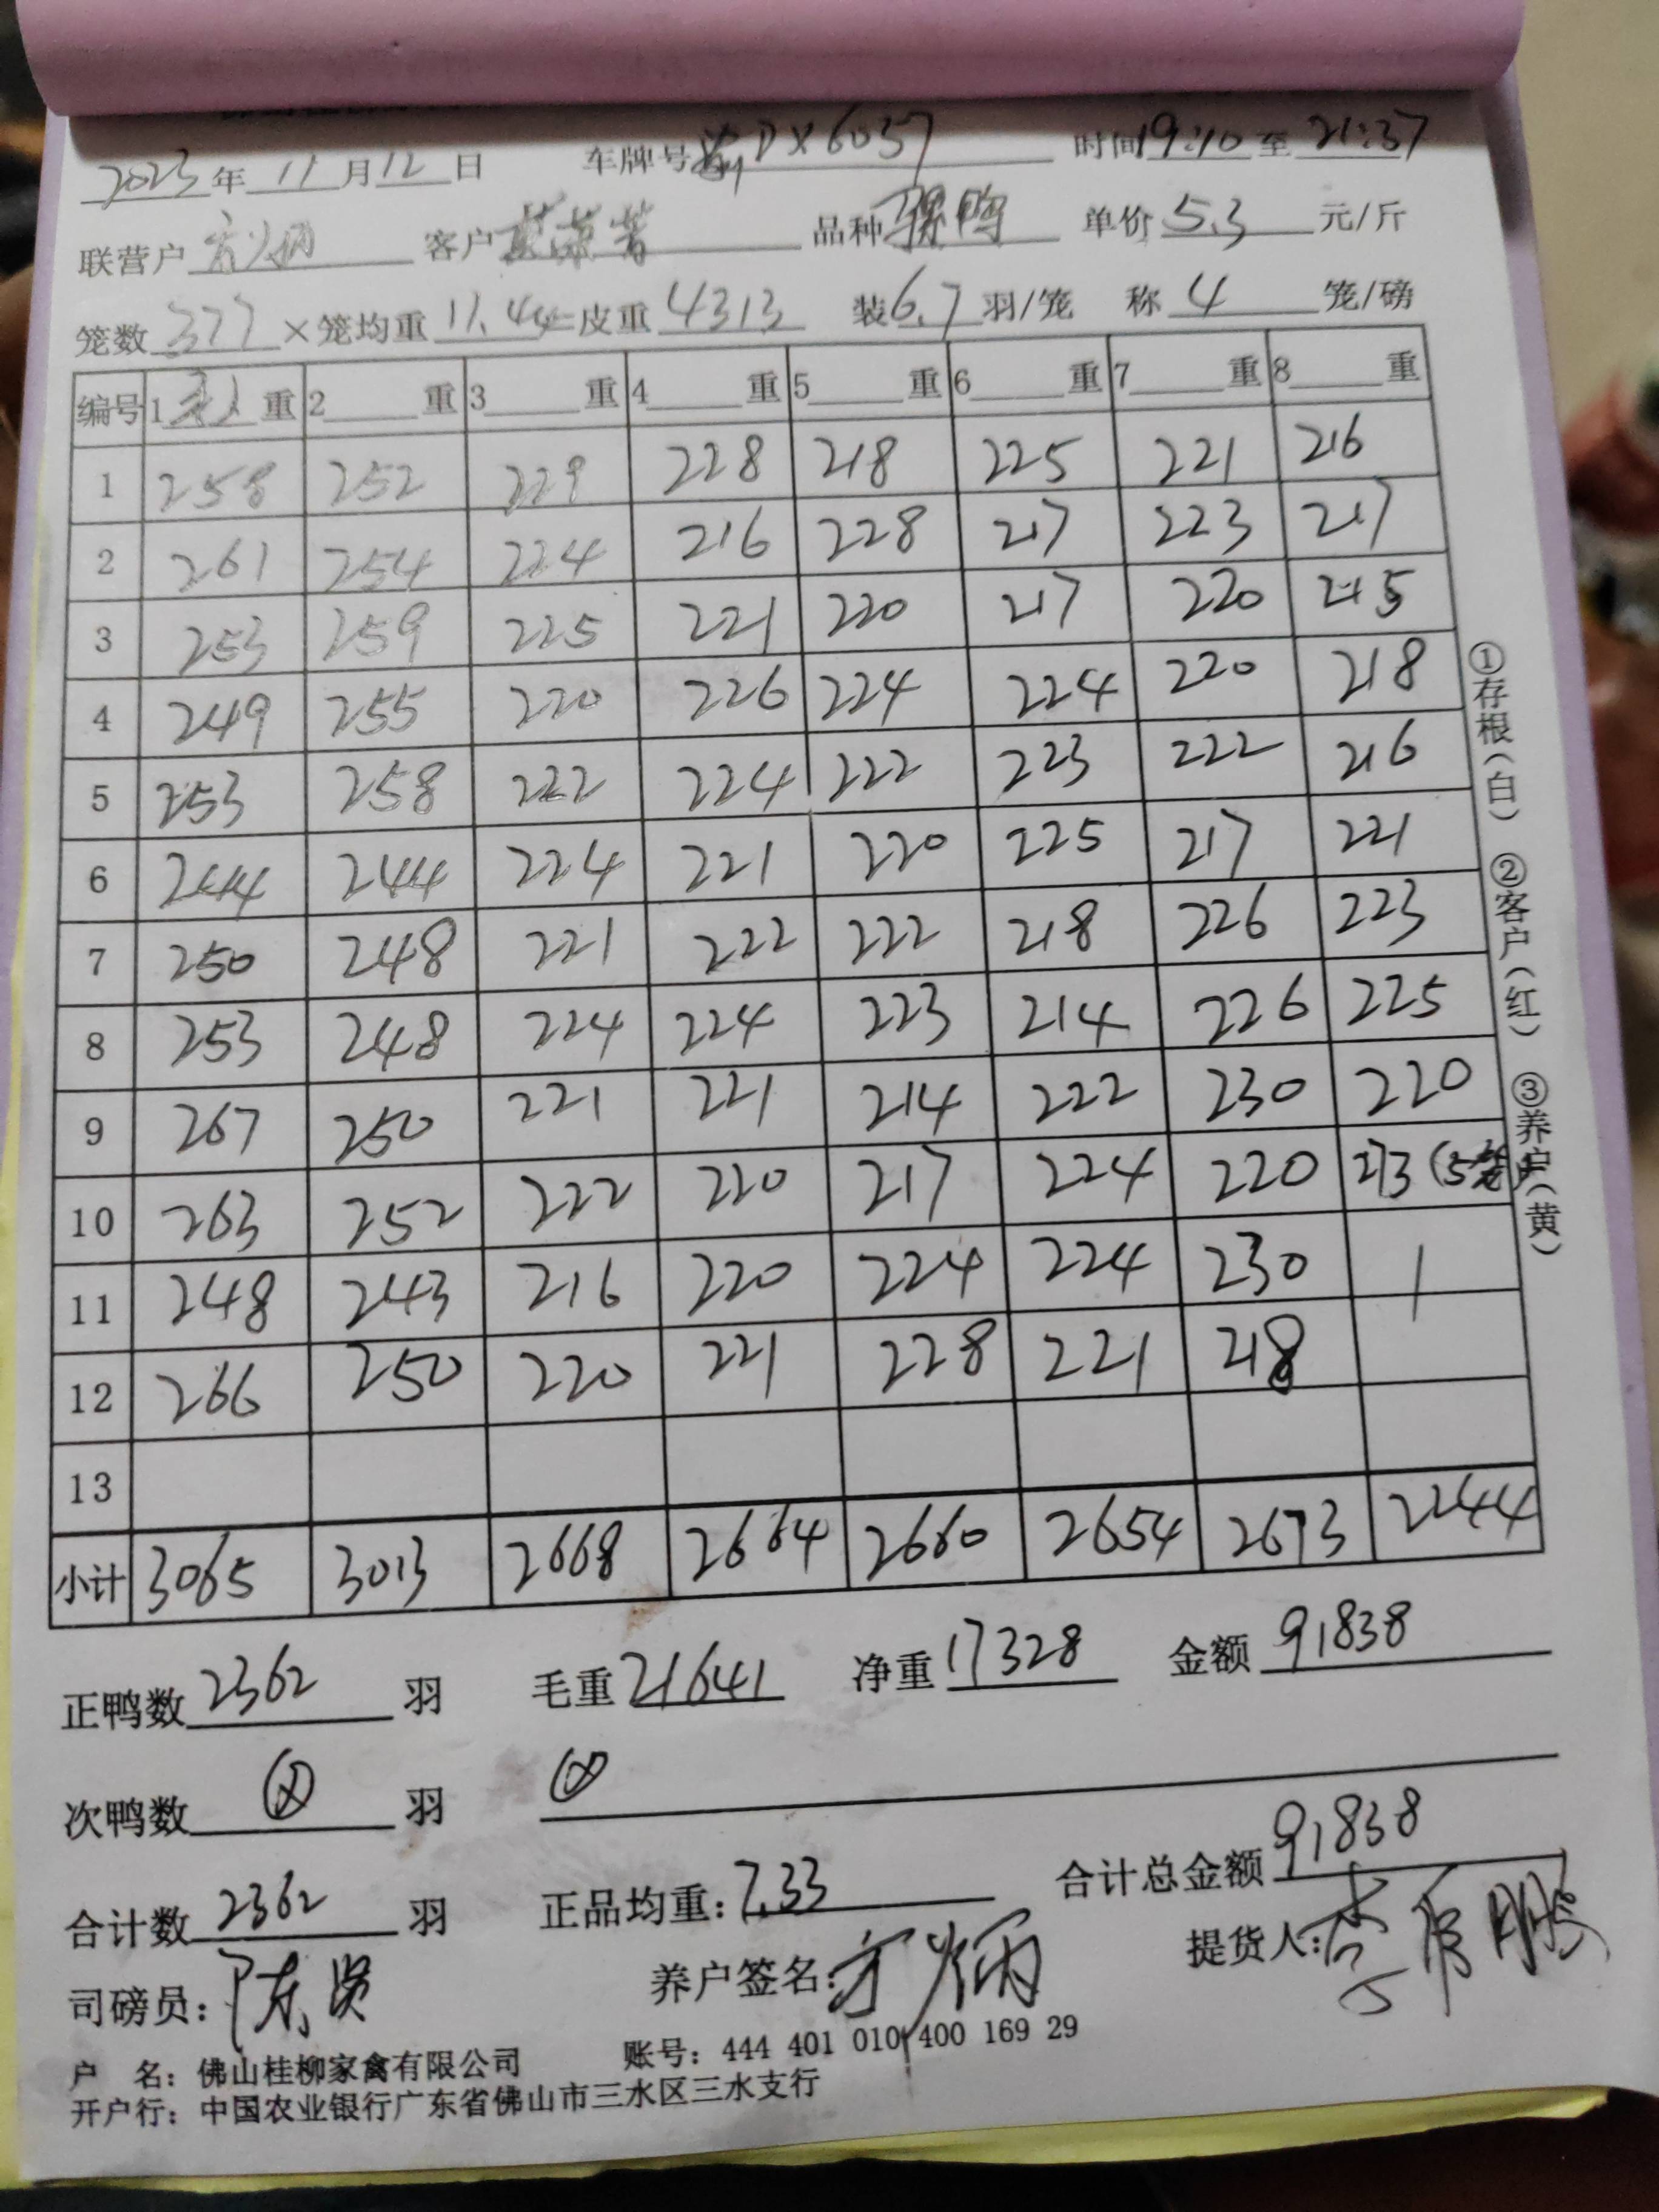 2023年11月12日 车牌号粤DX6037 时间19:10至21:37
联营户方炳 客户 品种骡鸭 单价5.3元/斤
笼数377×笼均重11.44=皮重4313 装6.7羽/笼 称4笼/磅
编号 1 重 2 重 3 重 4 重 5 重 6 重 7 重 8 重
1 258 252 229 228 218 225 221 216
2 261 254 224 216 228 217 223 217
3 253 259 225 221 220 217 220 215
4 249 255 220 226 224 224 220 218
5 253 258 222 224 222 223 222 216
6 244 244 224 221 220 225 217 221
7 250 248 221 222 222 218 226 223
8 253 248 224 224 223 214 226 225
9 267 250 221 221 214 222 230 220
10 263 252 222 220 217 224 220 273(5笼)
11 248 243 216 220 224 224 230
12 266 250 220 221 228 221 218
13
小计 3065 3013 2668 2664 2660 2654 2673 2244
①存根(白) ②客户(红) ③养户(黄)
正鸭数2362羽 毛重21641 净重17328 金额91838
次鸭数 羽
合计数2362羽 正品均重:7.33 合计总金额91838
司磅员:陈贤 养户签名:方炳 提货人:
户 名:佛山桂柳家禽有限公司 账号:444 401 010 400 169 29
开户行:中国农业银行广东省佛山市三水区三水支行